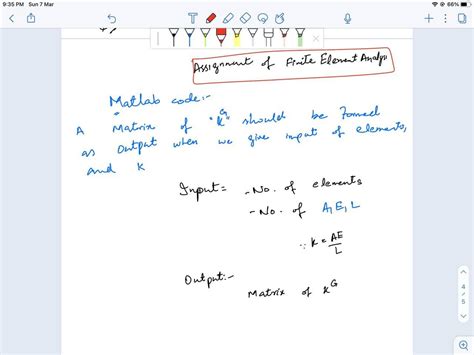 9:35 PM Sun 7 Mar
66%
Assignment of Finite Element Analysis
Matlab code:-
A Matrix of "K^G" should be formed
as output when we give input of elements,
and K
Input = - No. of elements
- No. of A, E, L
∵ k = AE/L
Output:-
Matrix of K^G
4
5